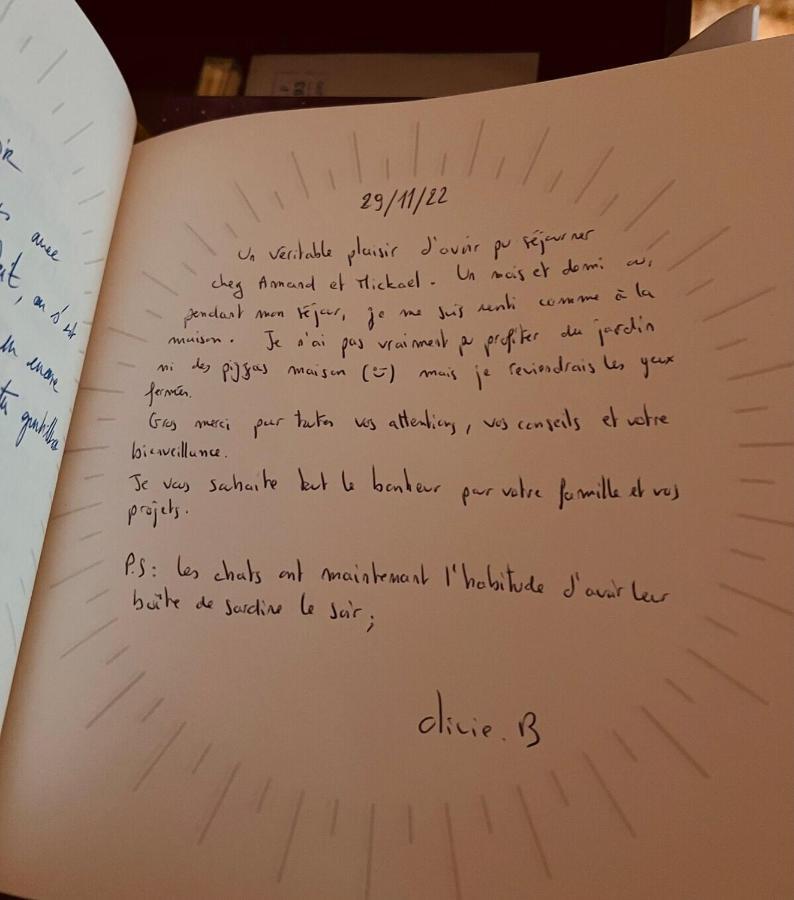 29/11/22
Un véritable plaisir d'avoir pu séjourner
chez Armand et Mickael. Un mois et demi où,
pendant mon séjour, je me suis senti comme à la
maison. Je n'ai pas vraiment pu profiter du jardin
ni des pizzas maison (:) mais je reviendrais les yeux
fermés.
Gros merci pour toutes vos attentions, vos conseils et votre
bienveillance.
Je vous souhaite tout le bonheur pour votre famille et vos
projets.
P.S: Les chats ont maintenant l'habitude d'avoir leur
boîte de sardine le soir;
B
avec
on s'est
encore